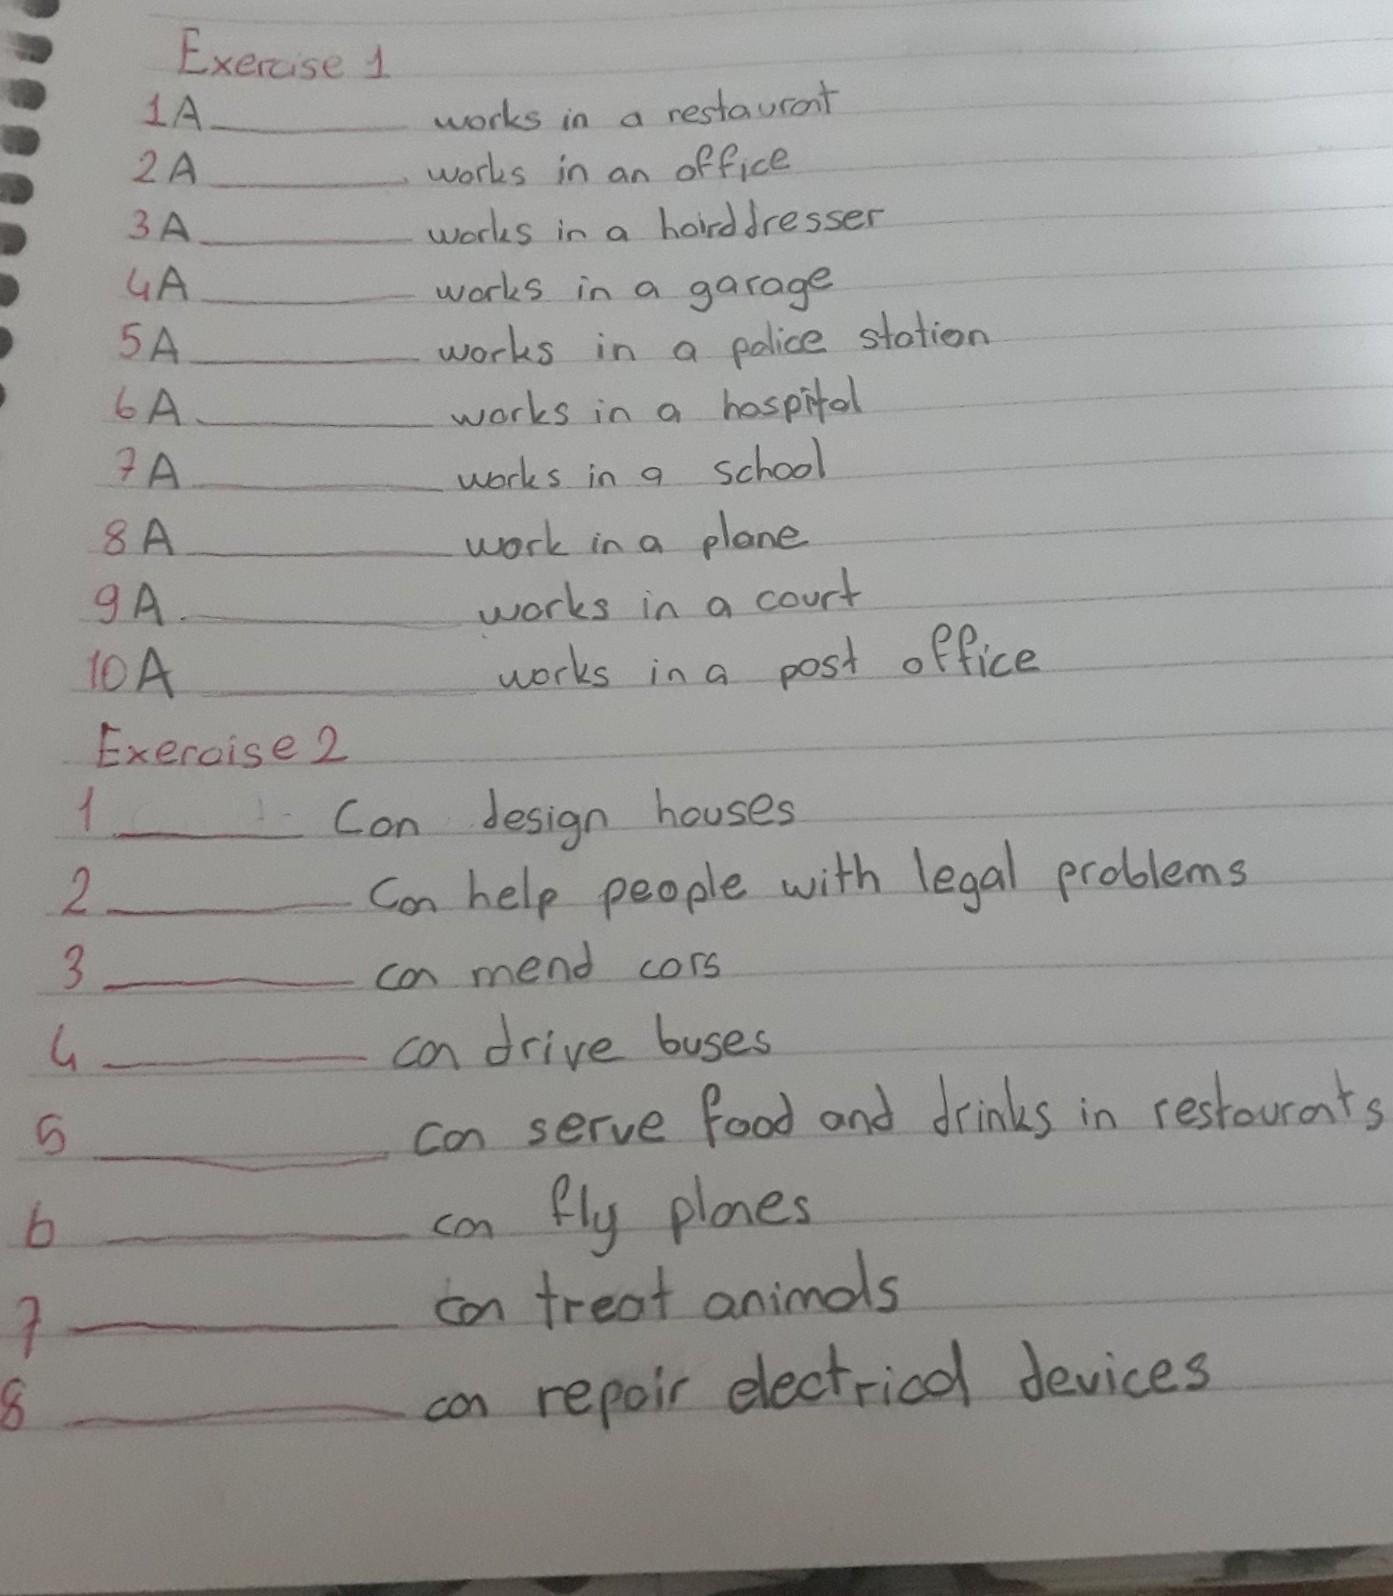 Exercise 1
1A__________ works in a restaurant
2A__________ works in an office
3A__________ works in a hairddresser
4A__________ works in a garage
5A__________ works in a police station
6A__________ works in a hospital
7A__________ works in a school
8A__________ work in a plane
9A__________ works in a court
10A__________ works in a post office
Exercise 2
1__________ Can design houses
2__________ Can help people with legal problems
3__________ can mend cars
4__________ can drive buses
5__________ can serve food and drinks in restaurants
6__________ can fly planes
7__________ can treat animals
8__________ can repair electrical devices